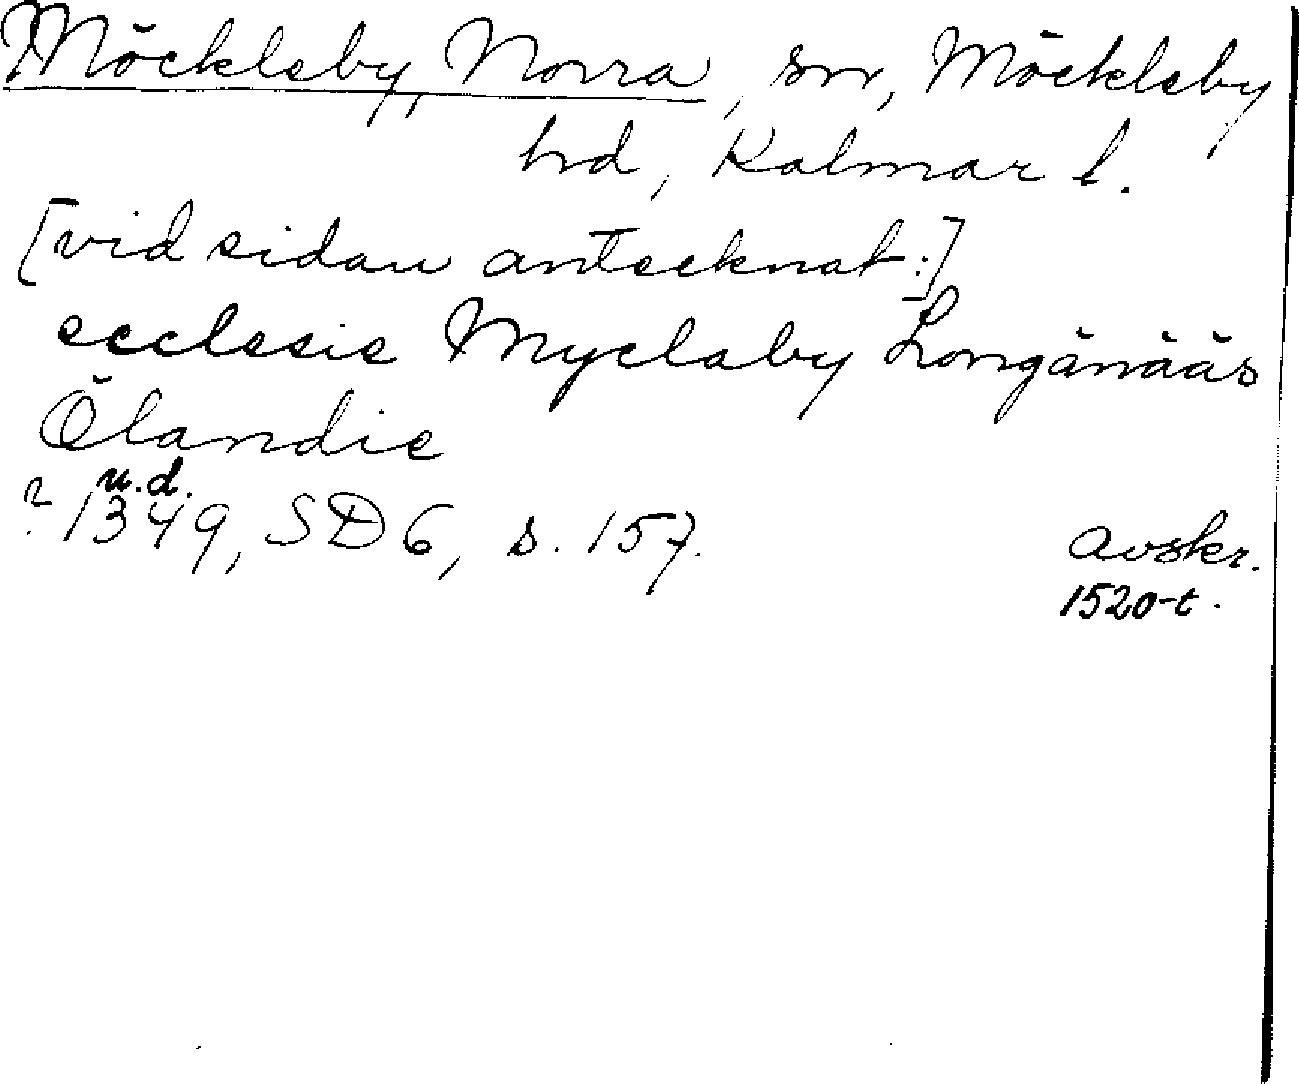 Möckleby, Norra, sn, Möckleby
hd, Kalmar l.
[vid sidan antecknat:]
ecclesie Myclaby Longänääs
Ölandie
u.d.
? 1349, SD 6, s. 157.
Avskr.
1520-t.